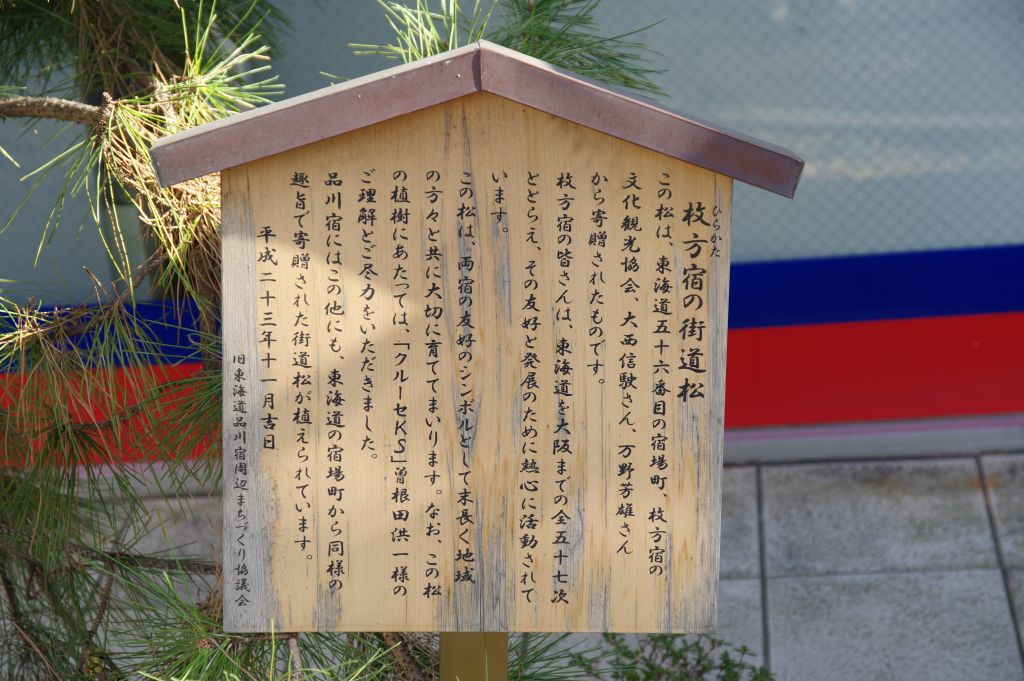 ひらかた
枚方宿の街道松
この松は、東海道五十六番目の宿場町、枚方宿の
文化観光協会、大西信駛さん、万野芳雄さん
から寄贈されたものです。
枚方宿の皆さんは、東海道を大阪までの全五十七次
ととらえ、その友好と発展のために熱心に活動されて
います。
この松は、両宿の友好のシンボルとして末長く地域
の方々と共に大切に育ててまいります。なお、この松
の植樹にあたっては、「クルーセKS」曽根田洪一様の
ご理解とご尽力をいただきました。
品川宿にはこの他にも、東海道の宿場町から同様の
趣旨で寄贈された街道松が植えられています。
平成二十三年十一月吉日
旧東海道品川宿周辺まちづくり協議会